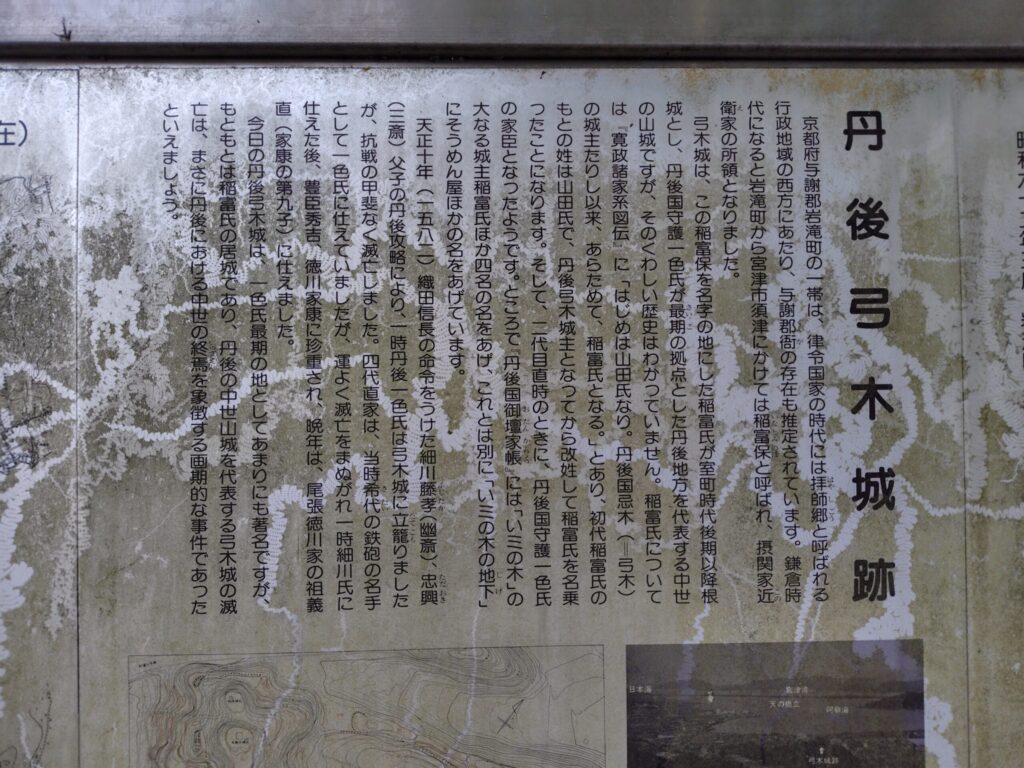 丹後弓木城跡
京都府与謝郡岩滝町の一帯は、律令国家の時代には拝師郷と呼ばれる
行政地域の西方にあたり、与謝郡衙の存在も推定されています。鎌倉時
代になると岩滝町から宮津市須津にかけては稲富保と呼ばれ、摂関家近
衛家の所領となりました。
弓木城は、この稲富保を名字の地にした稲富氏が室町時代後期以降根
城とし、丹後国守護一色氏が最期の拠点とした丹後地方を代表する中世
の山城ですが、そのくわしい歴史はわかっていません。稲富氏について
は『寛政諸家系図伝』に「はじめは山田氏なり。丹後国忌木(=弓木)
の城主たりし以来、あらためて、稲富氏となる。」とあり、初代稲富氏の
もとの姓は山田氏で、丹後弓木城主となってから改姓して稲富氏を名乗
ったことになります。そして、二代目直時のときに、丹後国守護一色氏
の家臣となったようです。ところで『丹後国御壇家帳』には「いミの木」の
大なる城主稲富氏ほか四名の名をあげ、これとは別に「いミの木の地下」
にそうめん屋ほかの名をあげています。
天正十年(一五八二)織田信長の命令をうけた細川藤孝(幽斎)、忠興
(三斎)父子の丹後攻略により、一時丹後一色氏は弓木城に立籠りました
が、抗戦の甲斐なく滅亡しました。四代直家は、当時希代の鉄砲の名手
として一色氏に仕えていましたが、運よく滅亡をまぬがれ一時細川氏に
仕えた後、豊臣秀吉、徳川家康に珍重され、晩年は、尾張徳川家の祖義
直(家康の第九子)に仕えました。
今日の丹後弓木城は、一色氏最期の地としてあまりにも著名ですが、
もともとは稲富氏の居城であり、丹後の中世山城を代表する弓木城の滅
亡は、まさに丹後における中世の終焉を象徴する画期的な事件であった
といえましょう。
日本海
宮津湾
天の橋立
阿蘇海
弓木城跡
在)